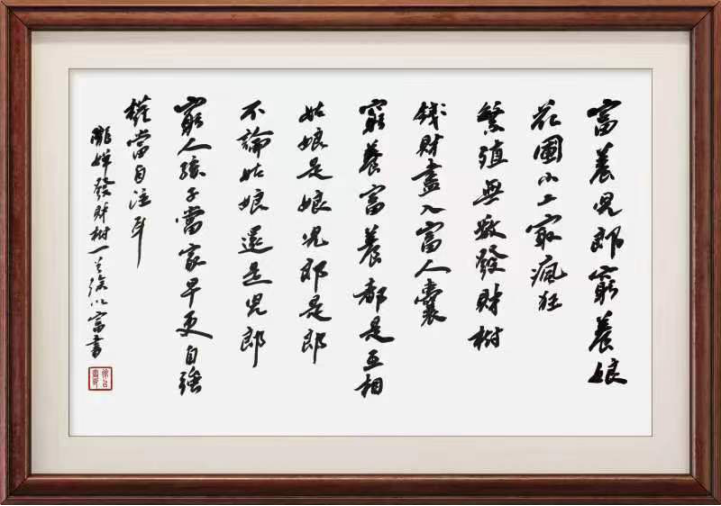 富養兒郎窮養娘
花圃小工最瘋狂
繁殖無數發財樹
錢財盡入富人囊
窮養富養都是互相
姑娘是娘兒郎是郎
不論姑娘還是兒郎
窮人孩子當家早更自強
權當自注耳
發財樹一首徐以富書